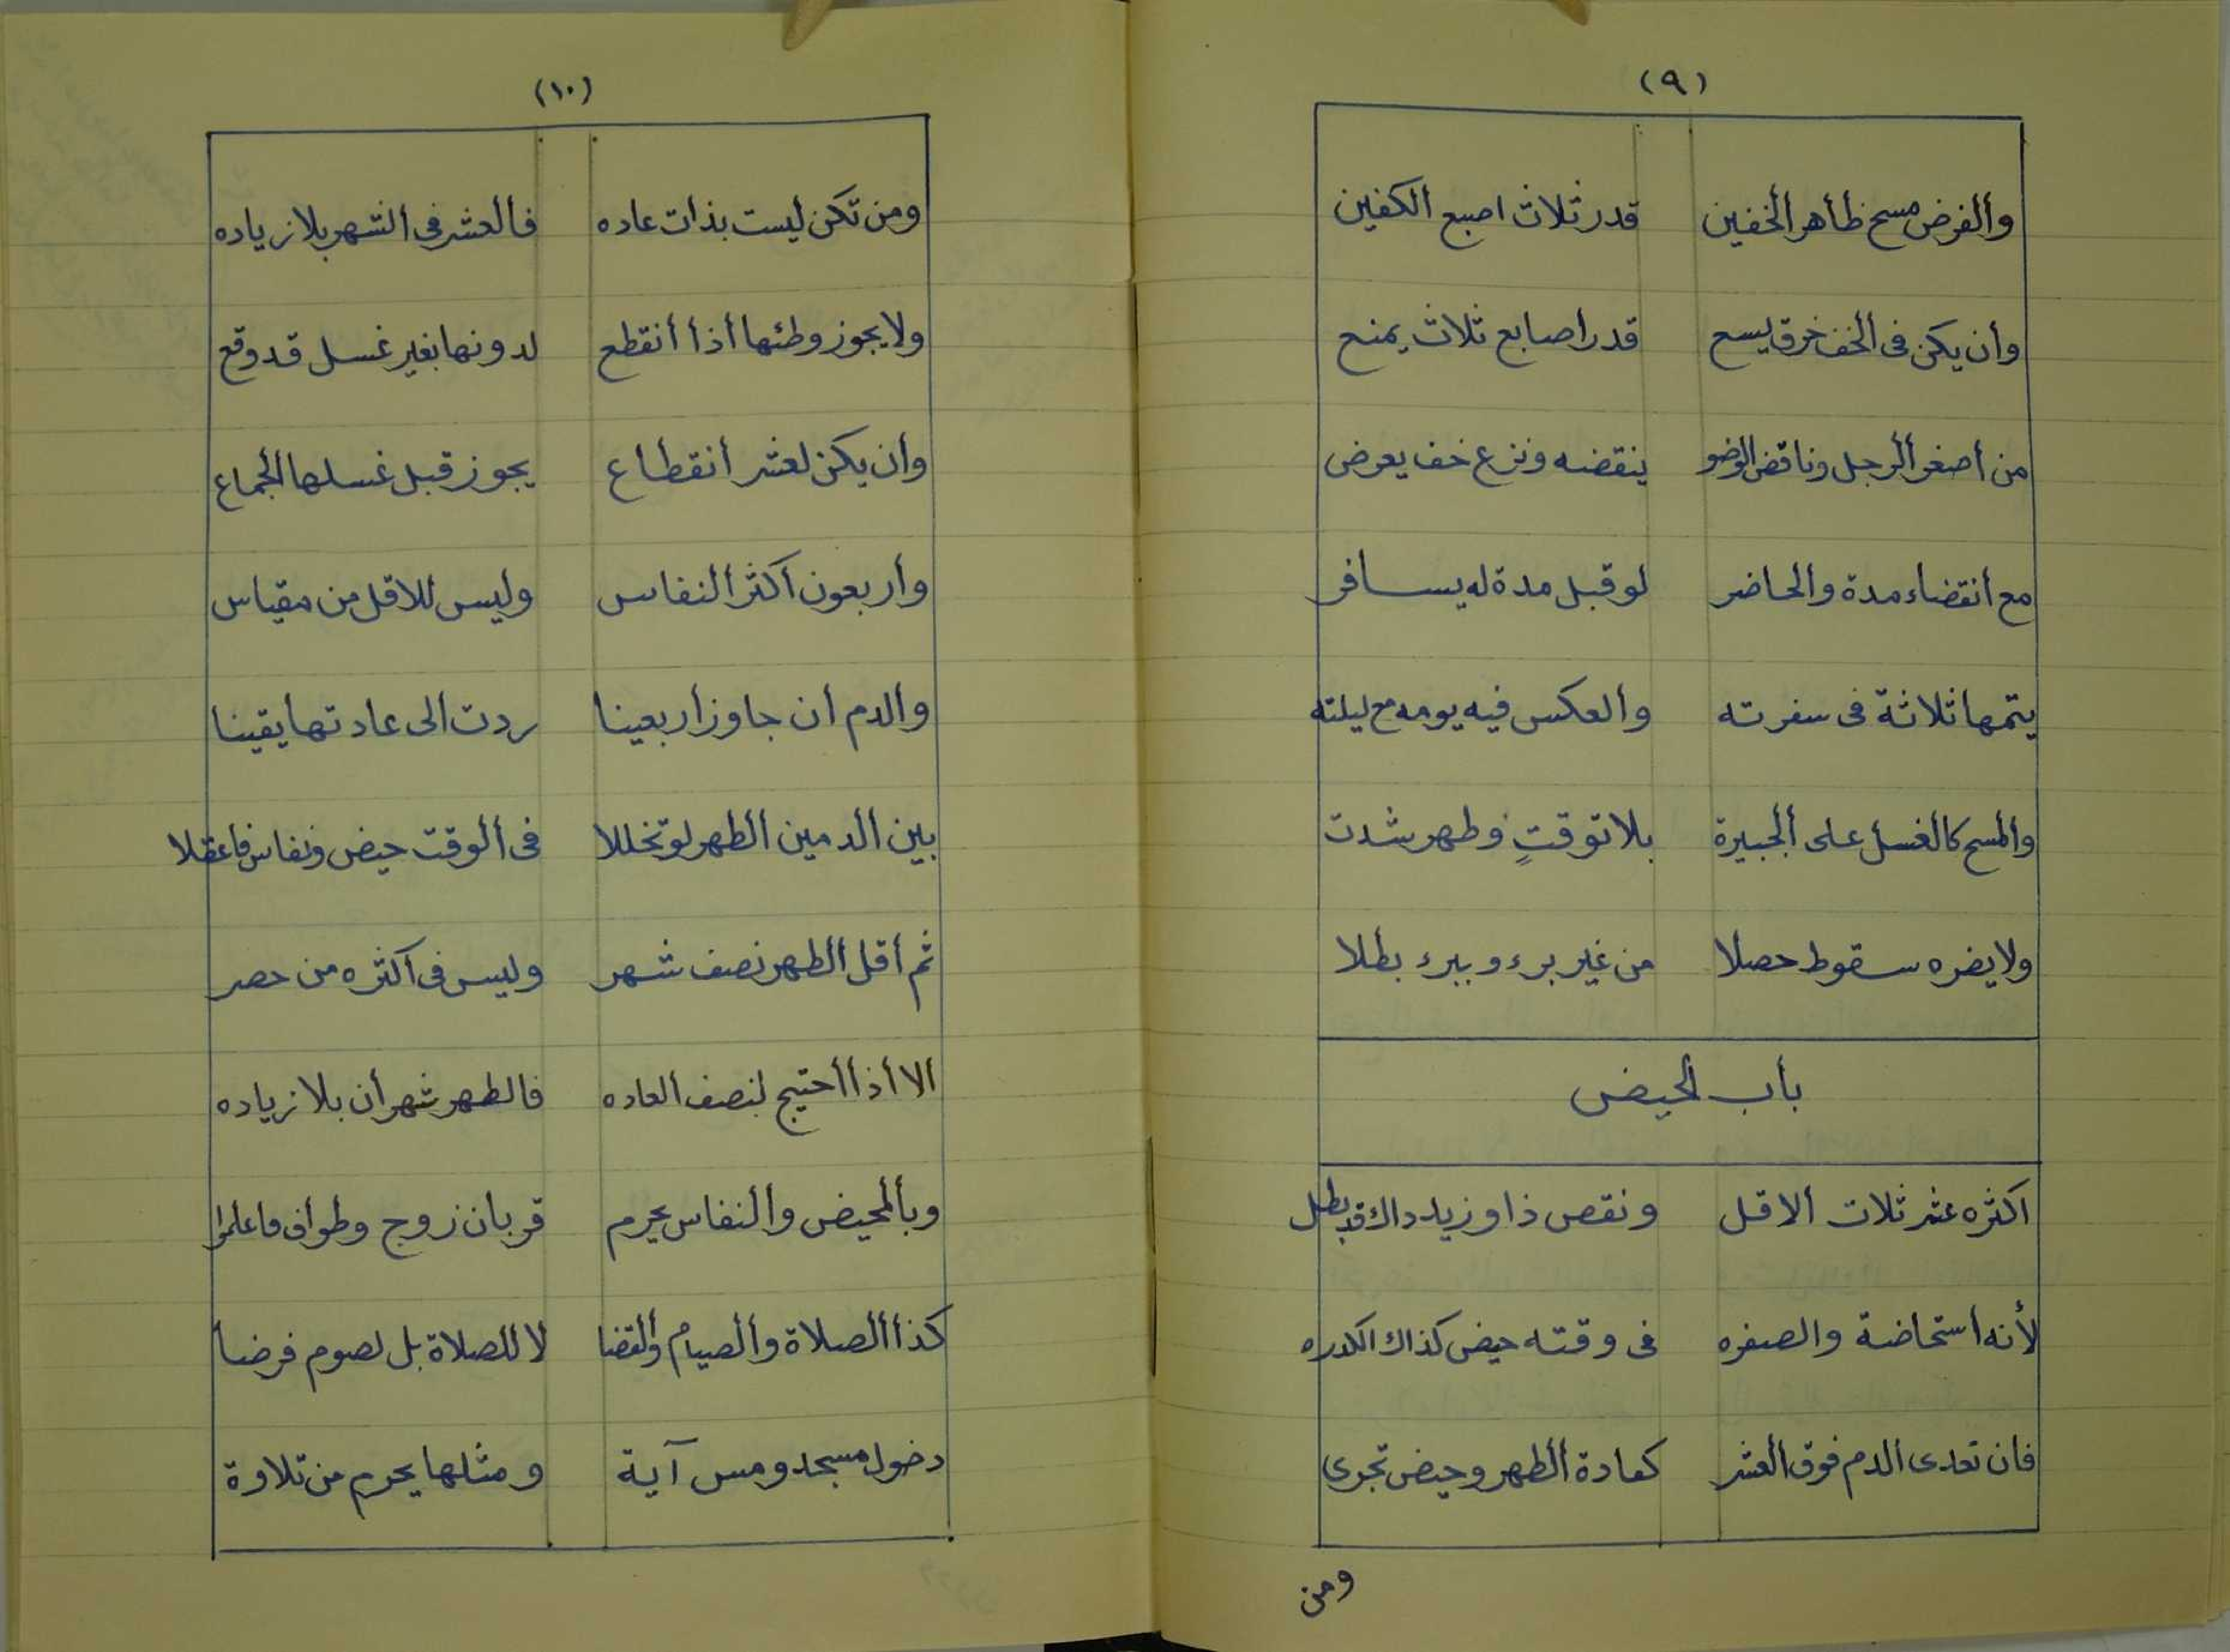 (٩)
والفرض مسح ظاهر الخفين قدر ثلاث اصبع الكفين
وأن يكن فى الخف خرق يسع قدر أصابع ثلاث يمنع
من أصغر الرجل وناقض الوضو ينقضه ونزع خف يعرض
مع أنقضاء مدة والحاضر لو قبل مدة له يسافر
يتمها ثلاثة فى سفرته والعكس فيه يومه مع ليلته
والمسح كالغسل على الجبيرة بلا توقتٍ وطهر شدت
ولا يضره سقوط حصلا من غير برء وببرء بطلا
بأب الحيض
اكثره عشر ثلاث الاقل ونقص ذا وزيد داك قد بطل
لأنه استحاضة والصفره فى وقته حيض كذاك الكدره
فان تعدى الدم فوق العشر كعادة الطهر وحيض تجرى
ومن
(١٠)
ومن تكن ليست بذات عاده فالعشر فى الشهر بلا زياده
ولا يجوز وطئها أذا أنقطع لدونها بغير غسل قد وقع
وأن يكن لعشر أنقطاع يجوز قبل غسلها الجماع
وأربعون أكثر النفاس وليس للاقل من مقياس
والدم ان جاوز أربعينا ردت الى عادتها يقينا
بين الدمين الطهر لو تخللا فى الوقت حيض ونفاس فاعقلا
ثم أقل الطهر نصف شهر وليس فى أكثره من حصر
الا أذا أحتيج لنصف العاده فالطهر شهر أن بلا زياده
وبألمحيض والنفاس يحرم قربان زوج وطواف فاعلموا
كذا الصلاة والصيام والقضا لا للصلاة بل لصوم فرضا
دخول مسجد ومس آية ومثلها يحرم من تلاوة